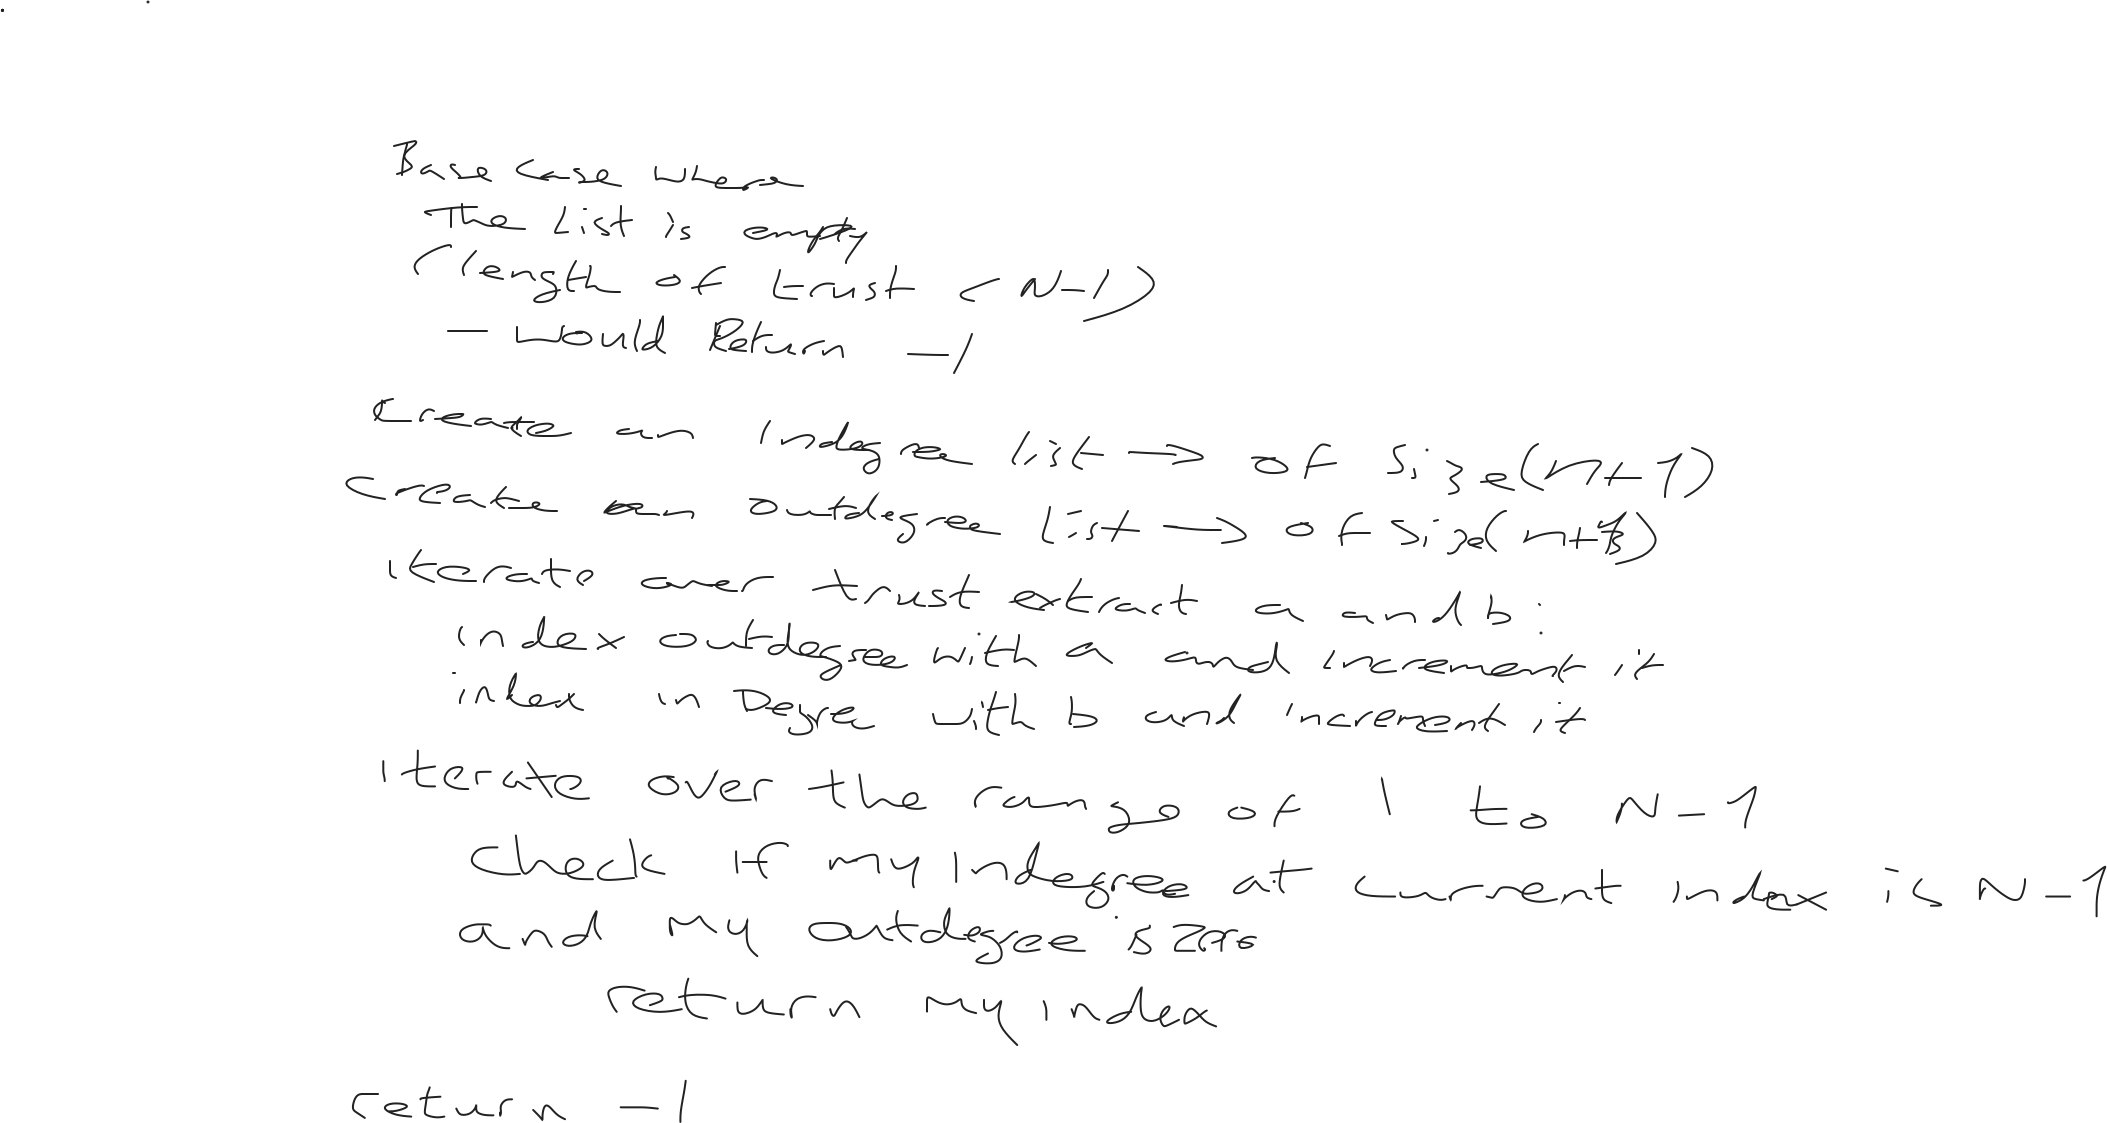 Base case where
The List is empty
(length of trust < N-1)
- would Return -1
Create an Indegree list → of size(n+1)
create an outdegree list → of size(n+1)
iterate over trust extract a and b:
index outdegree with a and increment it
index in Degree with b and increment it
iterate over the range of 1 to N-1
check if my indegree at current index is N-1
and my outdegree is zero
return my index
return -1